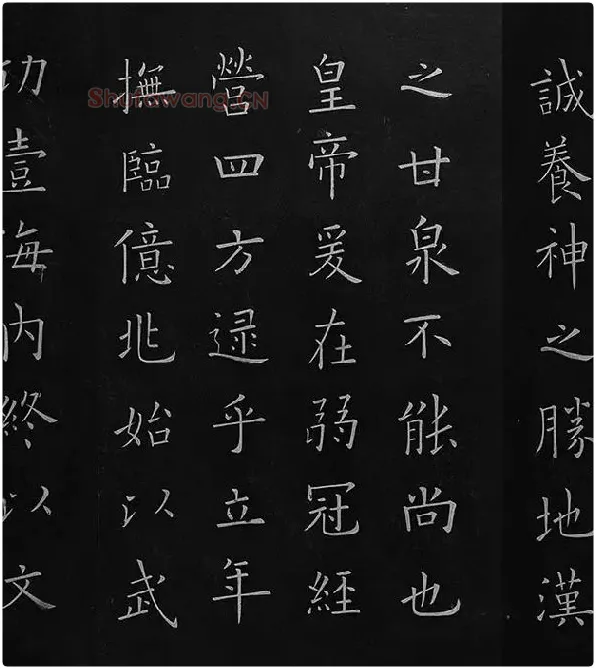 誠養神之勝地漢
之甘泉不能尚也
皇帝爰在弱冠經
營四方逯乎立年
撫臨億兆始以武
功壹海内終以文
Shufawang.CN